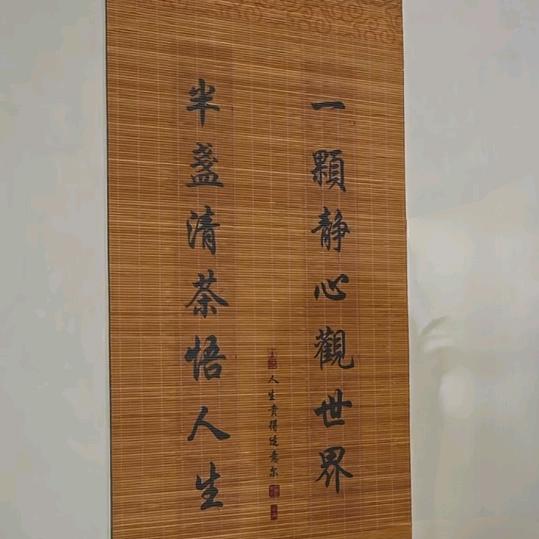 一顆靜心觀世界
半盞清茶悟人生
人生貴得适意尔